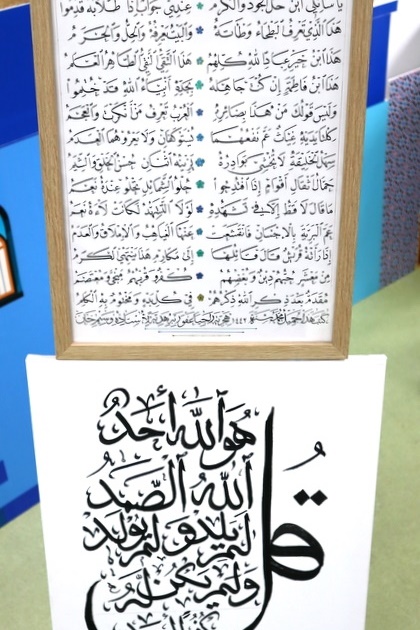 يا سائلي أين حل الجود والكرم عندي جوابا إذا طلابه قدموا
هذا الذي تعرف البطحاء وطأته والبيت يعرفه والحل والحرم
هذا ابن خير عباد الله كلهم هذا التقي النقي الطاهر العلم
هذا ابن فاطمة إن كنت جاهله بجده أنبياء الله قد ختموا
وليس قولك من هذا بضائره العرب تعرف من أنكرت والعجم
كلتا يديه غياث عم نفعهما تستوكفان ولا يعروهما العدم
سهل الخليقة لا تخشى بوادره يزينه اثنان حسن الخلق والشيم
حمال أثقال أقوام إذا افتدحوا حلو الشمائل تحلو عنده نعم
ما قال لا قط إلا في تشهده لولا التشهد كانت لاءه نعم
عم البرية بالإحسان فانقشعت عنها الغياهب والإملاق والعدم
إذا رأته قريش قال قائلها إلى مكارم هذا ينتهي الكرم
من معشر حبهم دين وبغضهم كفر وقربهم منجى ومعتصم
مقدم بعد ذكر الله ذكرهم في كل بدء ومختوم به الكلم
قُل
هُوَ ٱللَّهُ أَحَدٌ
ٱللَّهُ ٱلصَّمَدُ
لَمْ يَلِدْ وَلَمْ يُولَدْ
وَلَمْ يَكُن لَّهُ